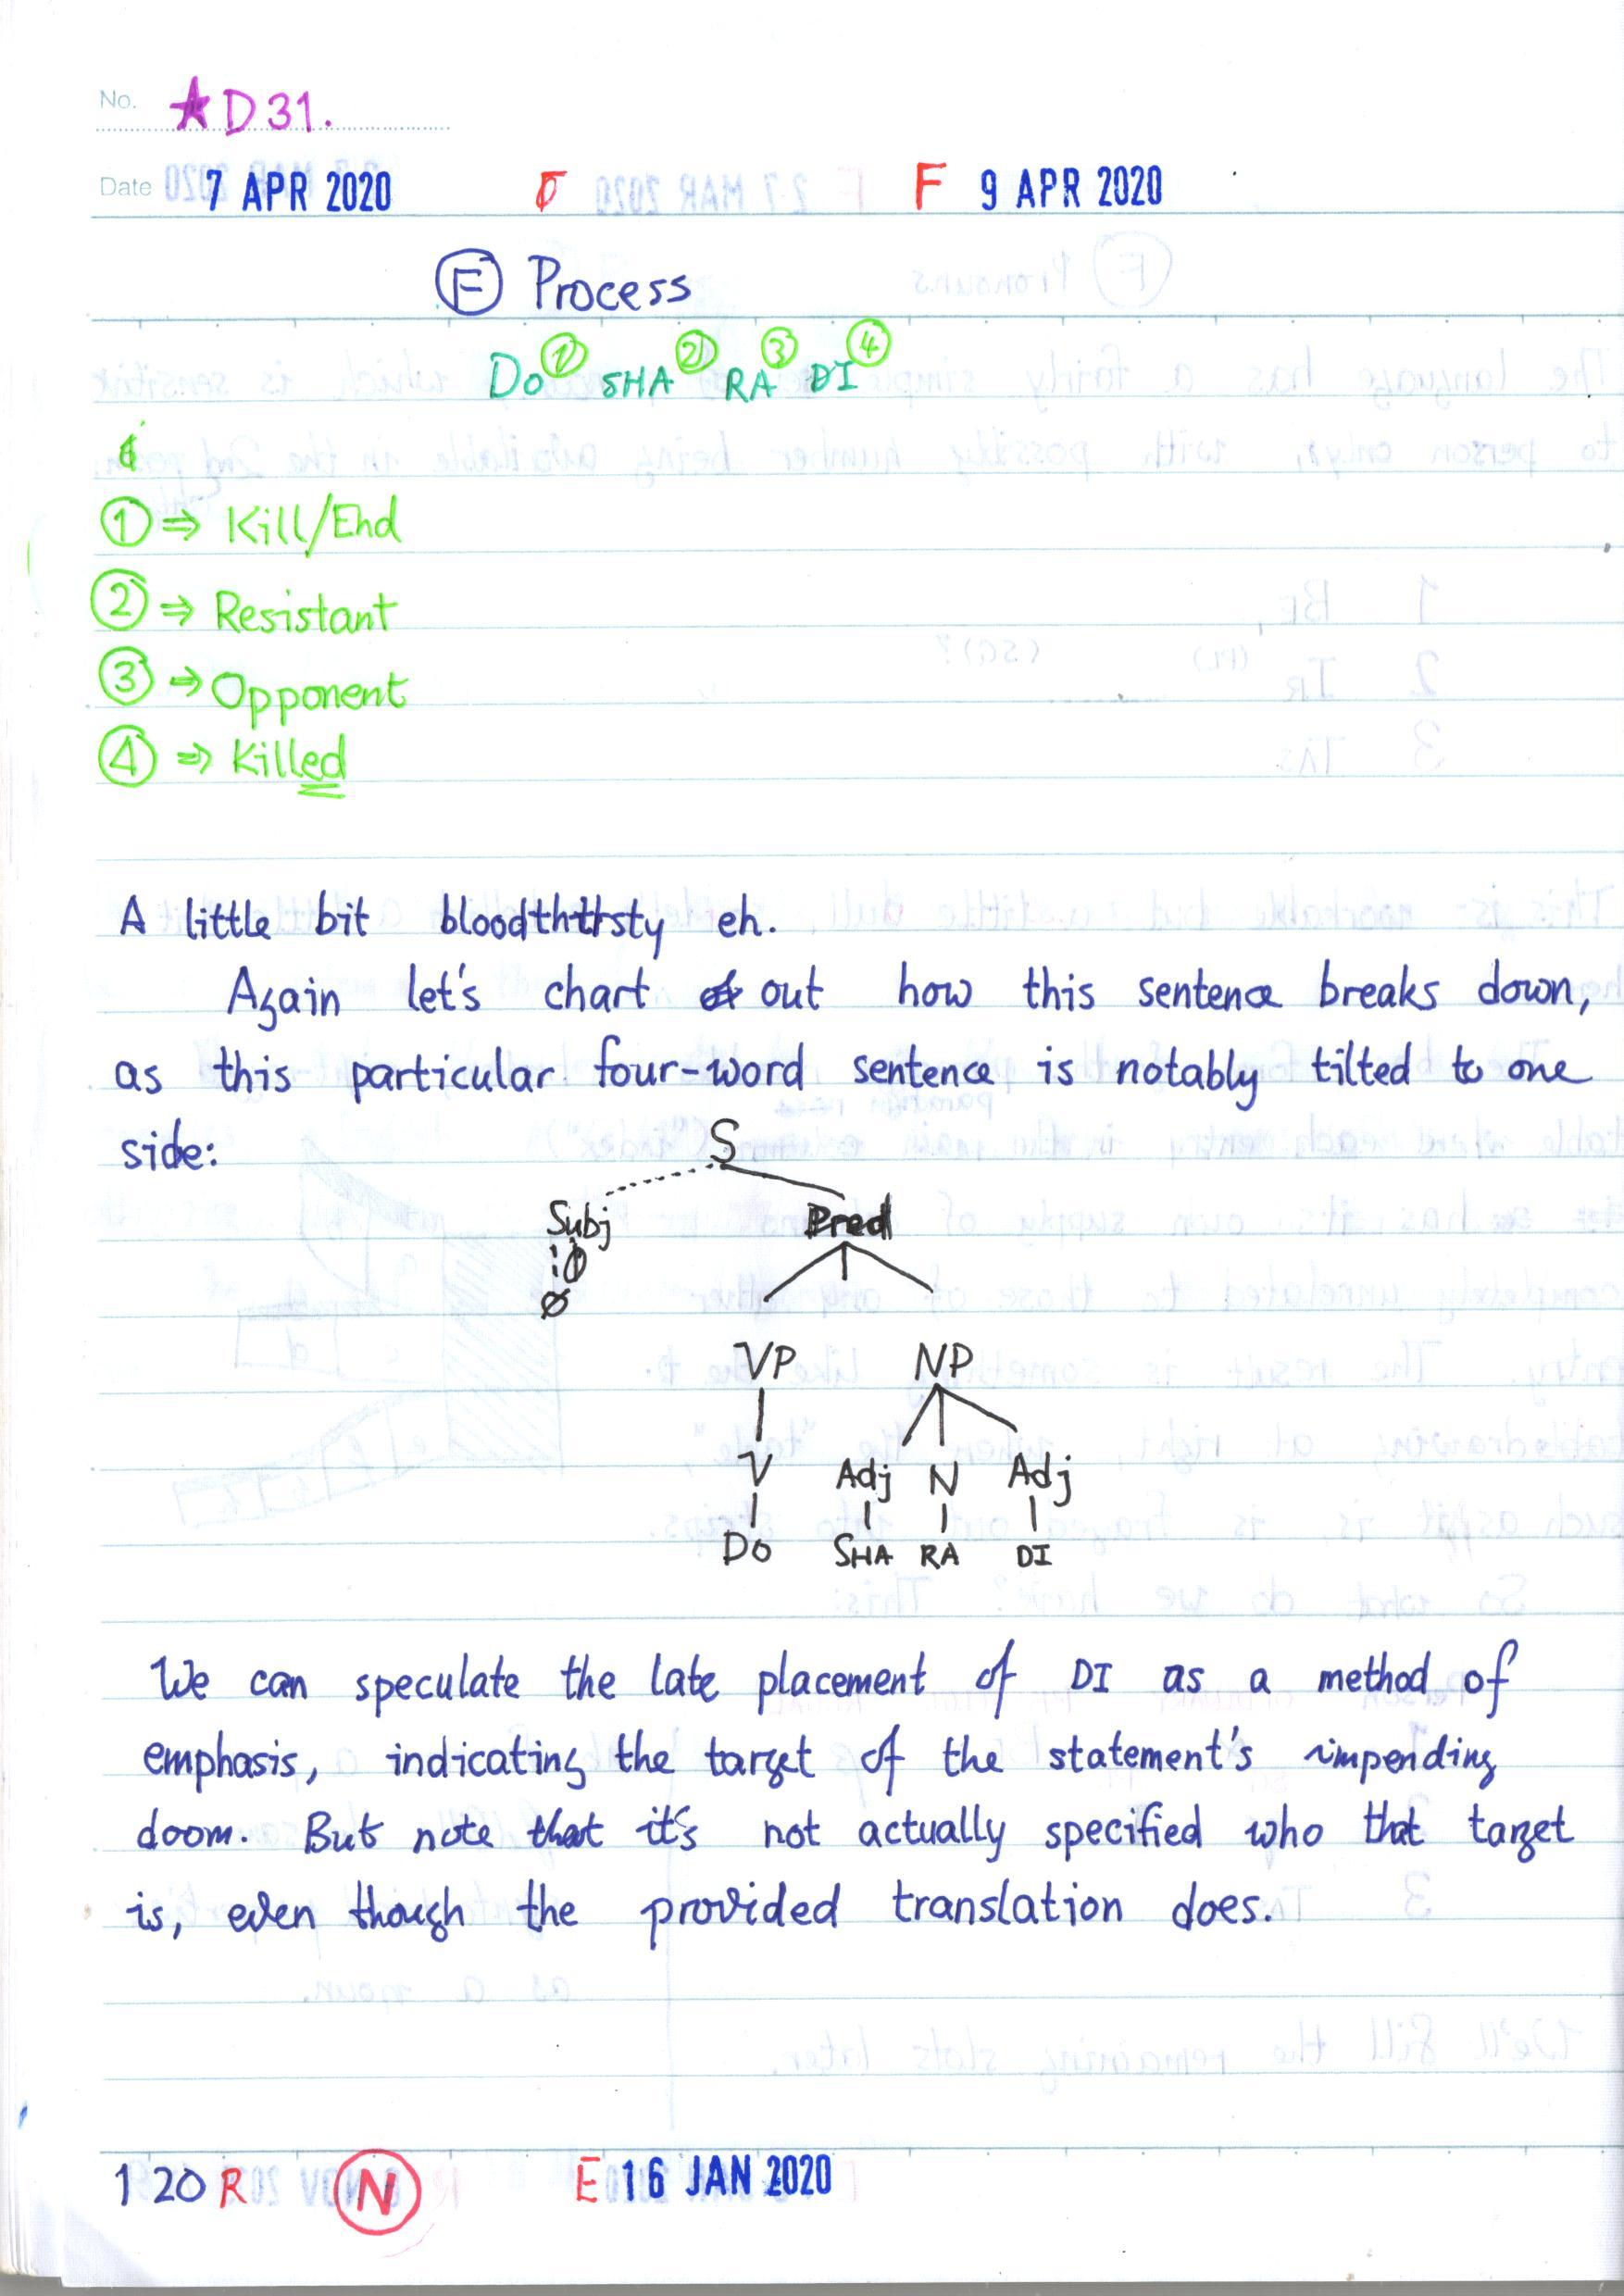 No. ★D31.
Date 7 APR 2020 F F 9 APR 2020
Ⓔ Process
Do① SHA② RA③ DI④
① ⇒ Kill/End
② ⇒ Resistant
③ ⇒ Opponent
④ ⇒ Killed
A little bit bloodthirsty eh.
Again let's chart out how this sentence breaks down,
as this particular four-word sentence is notably tilted to one
side:
S
Subj Pred
Ø
VP NP
V Adj N Adj
Do SHA RA DI
We can speculate the late placement of DI as a method of
emphasis, indicating the target of the statement's impending
doom. But note that it's not actually specified who that target
is, even though the provided translation does.
120 R Ⓝ E 16 JAN 2020